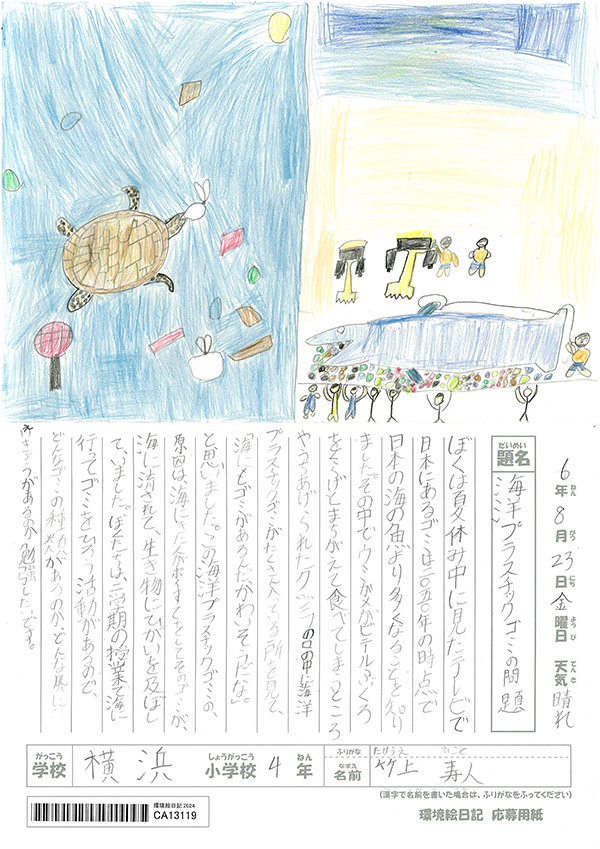 6年8月23日金曜日 天気 晴れ
ねん がつ にち ようび てんき
だいめい
題名 海洋プラスチックゴミの問題
ぼくは夏休み中に見たテレビで
日本にあるゴミは二〇五〇年の時点で
日本の海の魚より多くなることを知り
ました。その中でウミガメがビニールぶくろ
をくらげとまちがえて食べてしまうところ
やうちあげられたクジラの口の中に海洋
プラスチックゴミがたくさん入っている所を見て、
「海にもゴミがあるんだ、かわいそうだな。」
と思いました。この海洋プラスチックゴミの、
原因は、海にきた人がポイすてをしてそのゴミが、
海に流されて、生き物にひがいを及ぼし
ていました。ぼくたちは、二学期の授業で海に
行ってゴミをひろう活動があるので、
どんなゴミの種類があるのか、どんな風に
があるのか勉強したいです。
がっこう しょうがっこう ねん ふりがな
学校 横浜 小学校 4年 なまえ 名前 竹上 寿人
(漢字で名前を書いた場合は、ふりがなをふってください)
環境絵日記 2024
CA13119
環境絵日記 応募用紙